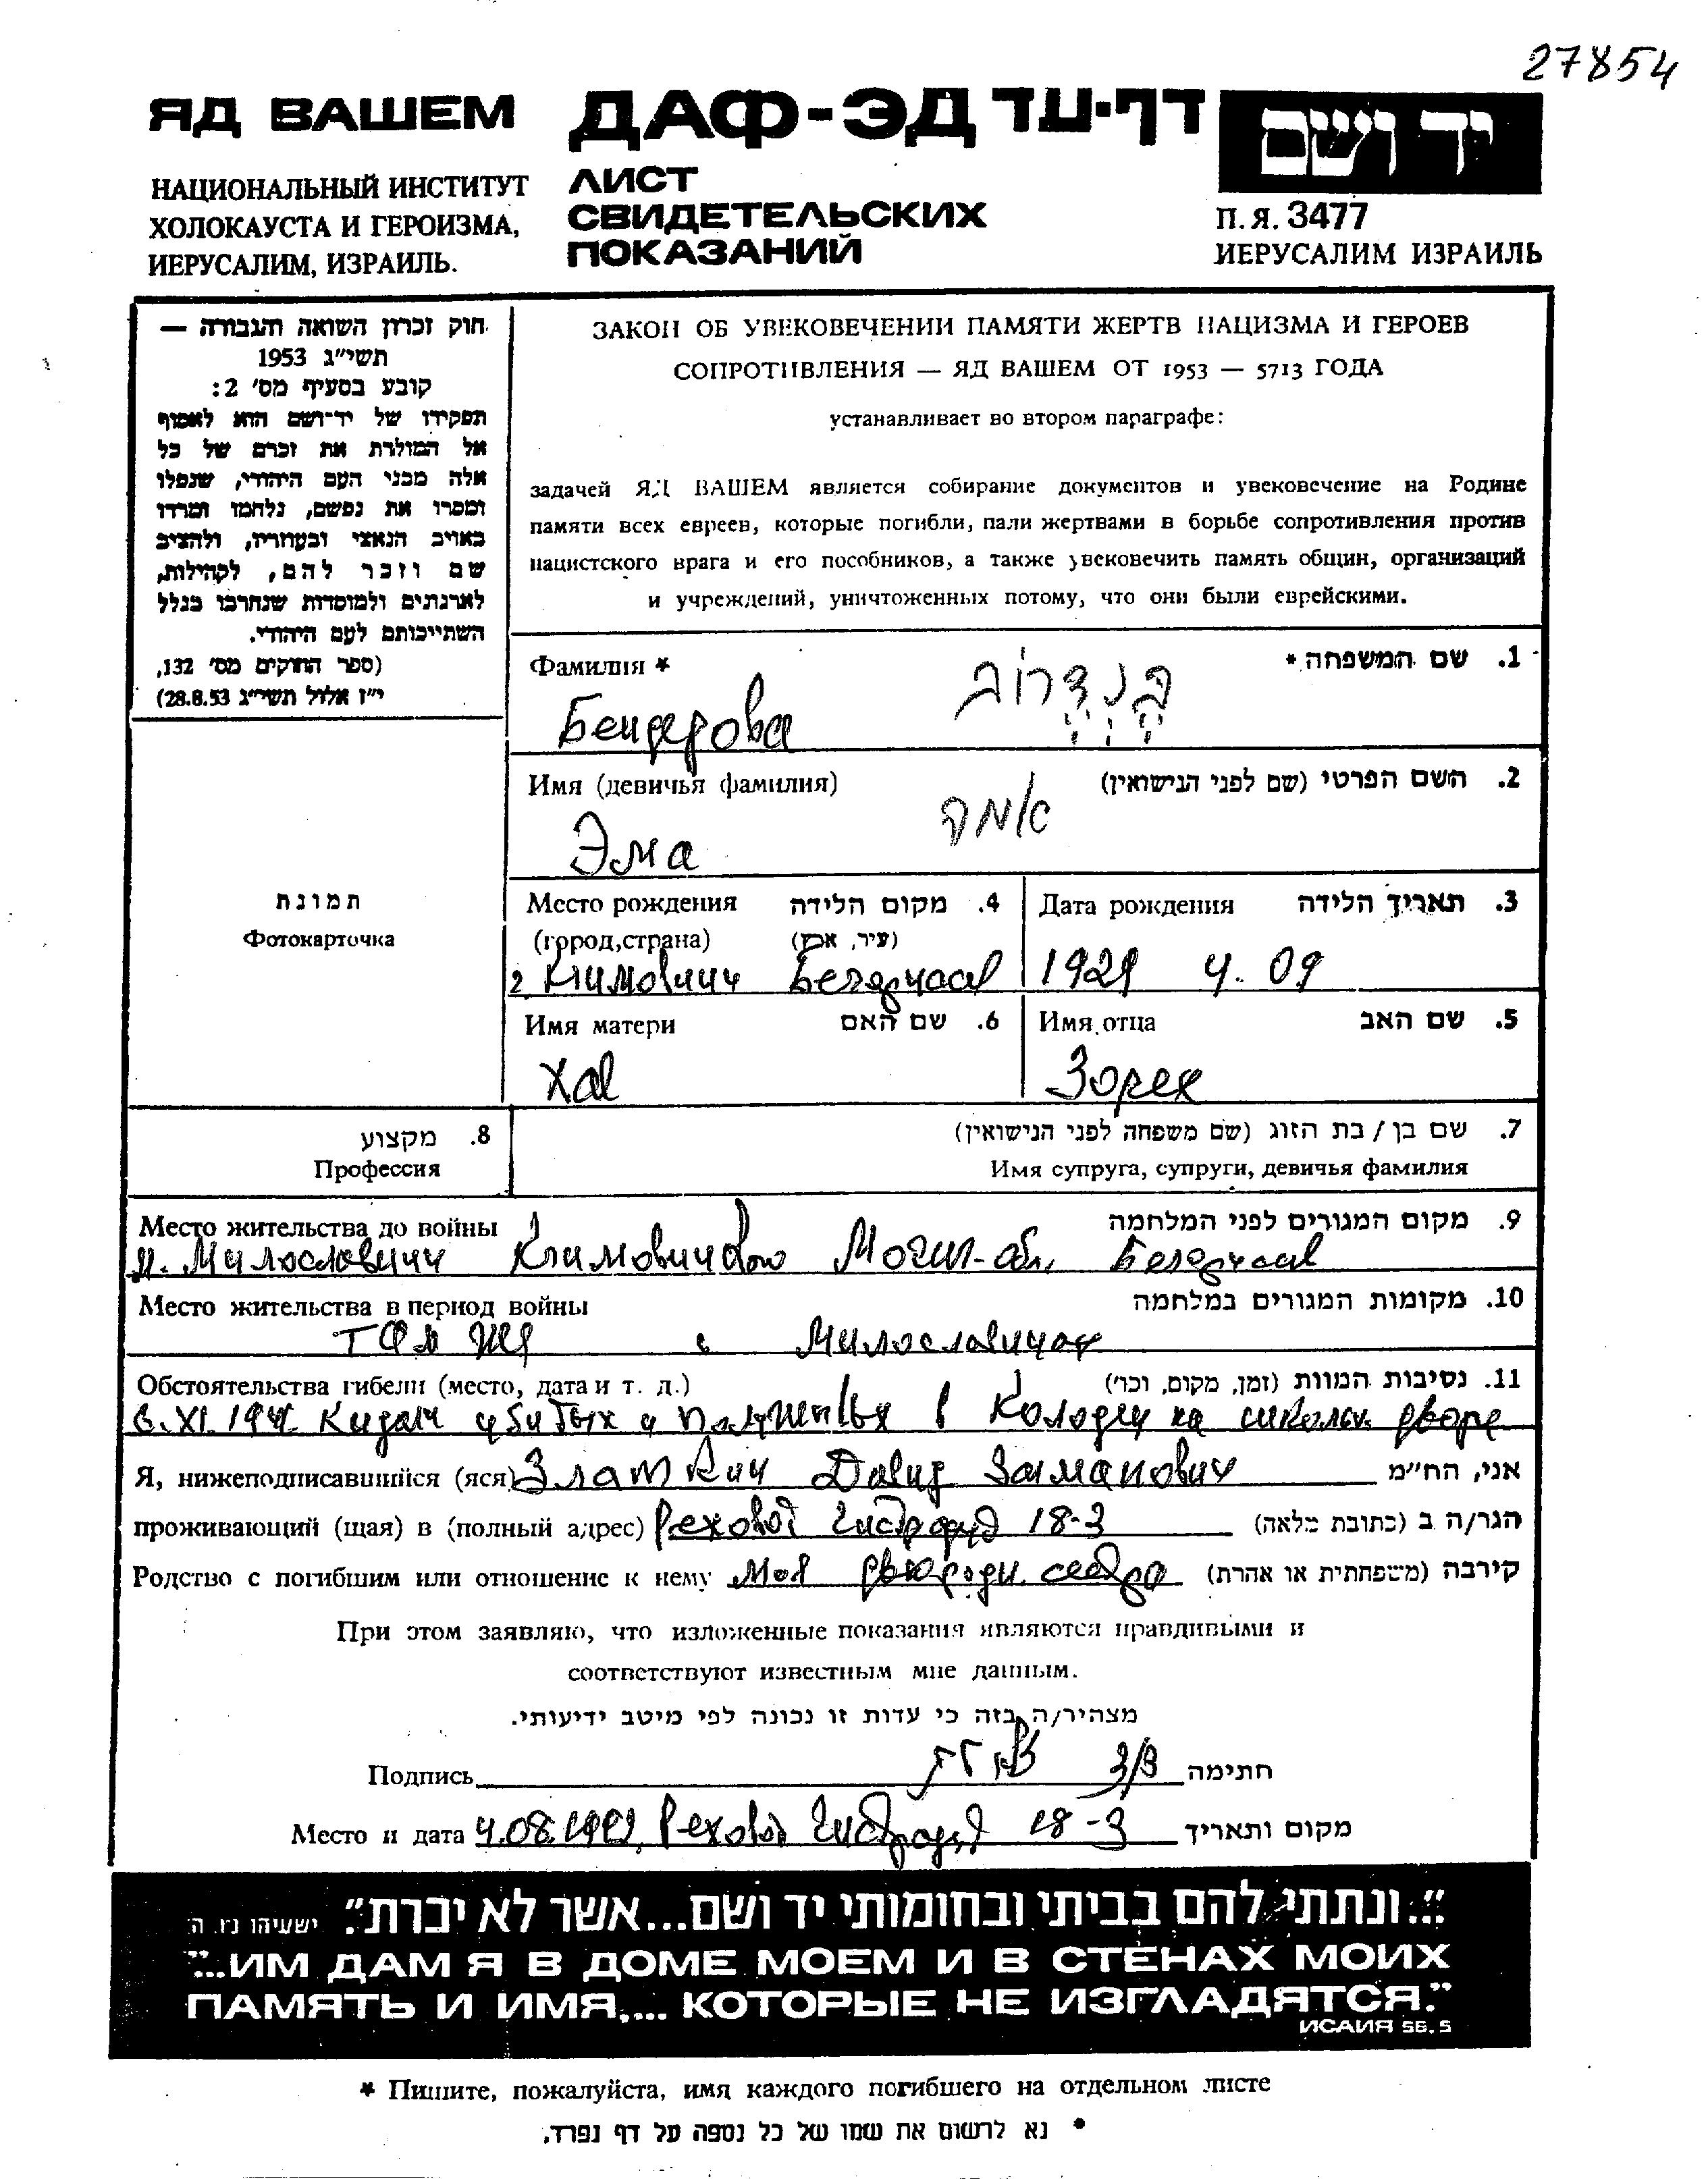 27854
ЯД ВАШЕМ ДАФ-ЭД דף-עד יד ושם
НАЦИОНАЛЬНЫЙ ИНСТИТУТ
ХОЛОКАУСТА И ГЕРОИЗМА,
ИЕРУСАЛИМ, ИЗРАИЛЬ.
ЛИСТ
СВИДЕТЕЛЬСКИХ
ПОКАЗАНИЙ
П.Я. 3477
ИЕРУСАЛИМ ИЗРАИЛЬ
חוק זכרון השואה והגבורה —
תשי"ג 1953
קובע בסעיף מס' 2:
תפקידו של יד-ושם הוא לאסוף
אל המולדת את זכרם של כל
אלה מבני העם היהודי, שנפלו
ומסרו את נפשם, נלחמו ומרדו
באויב הנאצי ובעוזריו, ולהציב
שם וזכר להם, לקהילות,
לארגונים ולמוסדות שנחרבו בגלל
השתייכותם לעם היהודי.
(ספר החוקים מס' 132,
י"ז אלול תשי"ג 28.8.53)
ЗАКОН ОБ УВЕКОВЕЧЕНИИ ПАМЯТИ ЖЕРТВ НАЦИЗМА И ГЕРОЕВ
СОПРОТИВЛЕНИЯ — ЯД ВАШЕМ ОТ 1953 — 5713 ГОДА
устанавливает во втором параграфе:
задачей ЯД ВАШЕМ является собирание документов и увековечение на Родине
памяти всех евреев, которые погибли, пали жертвами в борьбе сопротивления против
нацистского врага и его пособников, а также увековечить память общин, организаций
и учреждений, уничтоженных потому, что они были еврейскими.
Фамилия * 1. שם המשפחה *
Бендерова בנדרוב
Имя (девичья фамилия) 2. השם הפרטי (שם לפני הנישואין)
Эма אמה
תמונת
Фотокарточка
Место рождения 4. מקום הלידה
(город, страна) (עיר, ארץ)
г. Климовичи Белоруссия
Дата рождения 3. תאריך הלידה
1929 4. 09
Имя матери 6. שם האם
Хая
Имя отца 5. שם האב
Зорех
8. מקצוע
Профессия
7. שם בן / בת הזוג (שם משפחה לפני הנישואין)
Имя супруга, супруги, девичья фамилия
Место жительства до войны 9. מקום המגורים לפני המלחמה
Милославичи Могил-обл. Белоруссия
Место жительства в период войны 10. מקומות המגורים במלחמה
там же в Милославичах
Обстоятельства гибели (место, дата и т. д.) 11. נסיבות המוות (זמן, מקום, וכו')
6.XI.1941 Кидали убитых и в колодец на школьн. дворе
Я, нижеподписавшийся (яся) Златкин Давид Залманович אני, הח"מ
проживающий (щая) в (полный адрес) Реховот Гистадрут 18-3 הגר/ה ב (כתובת מלאה)
Родство с погибшим или отношение к нему моя двоюродн. сестра קירבה (משפחתית או אחרת)
При этом заявляю, что изложенные показания являются правдивыми и
соответствуют известным мне данным.
מצהיר/ה בזה כי עדות זו נכונה לפי מיטב ידיעותי.
Подпись חתימה
Место и дата 4.08.1992, Реховот Гистадрут 18-3 מקום ותאריך
"...ונתתי להם בביתי ובחומותי יד ושם...אשר לא יכרת." ישעיהו נ"ו. ה
"...ИМ ДАМ Я В ДОМЕ МОЕМ И В СТЕНАХ МОИХ
ПАМЯТЬ И ИМЯ,... КОТОРЫЕ НЕ ИЗГЛАДЯТСЯ."
ИСАИЯ 56.5
* Пишите, пожалуйста, имя каждого погибшего на отдельном листе
* נא לרשום את שמו של כל נספה על דף נפרד.